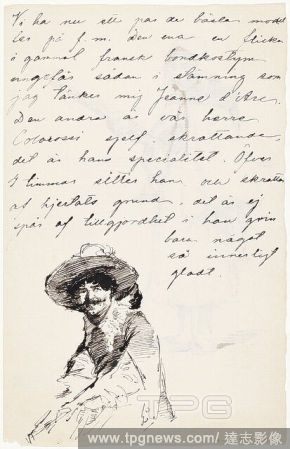 Vi ha nu ett par de bästa model
ler på f.m. Den ena en flicka
i gammal fransk bondkostym
sådan i stämning som
jag tänker mig Jeanne d'Arc.
Den andra är vår herre
Colorossi sjelf, skrattande,
det är hans specialitet. Öfver
timmar sitter han och skrattar
af hjertats grund, det är ej
spår af tillgjordhet i han grin
bara något
så innerligt
gladt.
TPG
www.tpgnews.com / 達志影像